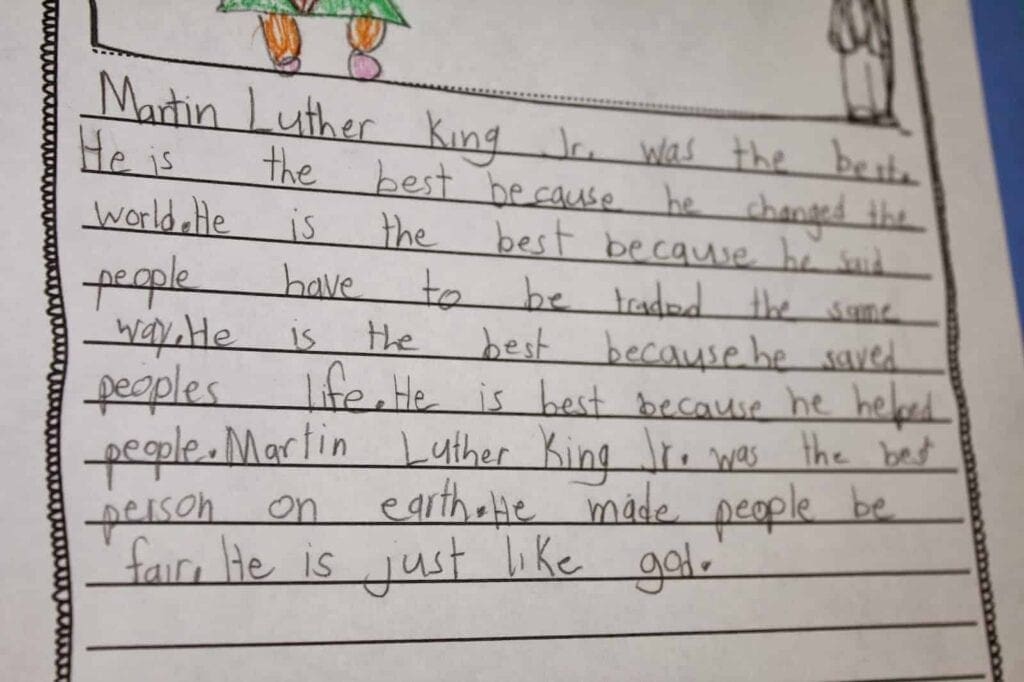 Martin Luther King Jr. was the best.
He is the best because he changed the
world. He is the best because he said
people have to be traded the same
way. He is the best because he saved
peoples life. He is best because he helped
people. Martin Luther King Jr. was the best
person on earth. He made people be
fair. He is just like god.